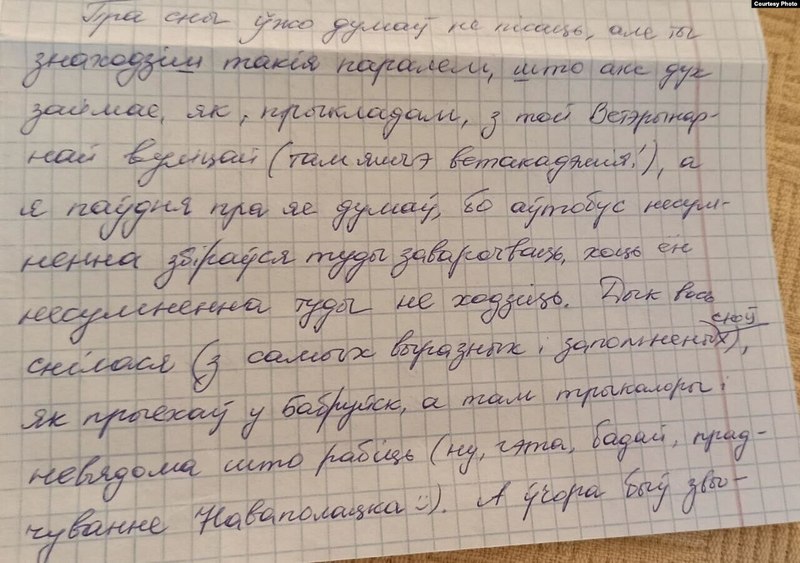 Courtesy Photo
Пра сны ўжо думаў не пісаць, але ты
знаходзіш такія паралелі, што аж дух
займае, як, прыкладам, з той Ветэрынар-
най вуліцай (там яшчэ ветакадэмія!), а
я паўдня пра яе думаў, бо аўтобус несум-
ненна збіраўся туды заварочваць, хоць ён
несумненна туды не ходзіць. Дык вось
сноў
снілася (з самых выразных і запомненых),
як прыехаў у Бабруйск, а там трыкалоры і
невядома што рабіць (ну, гэта, бадай, прад-
чуванне Наваполацка :)). А ўчора быў звы-